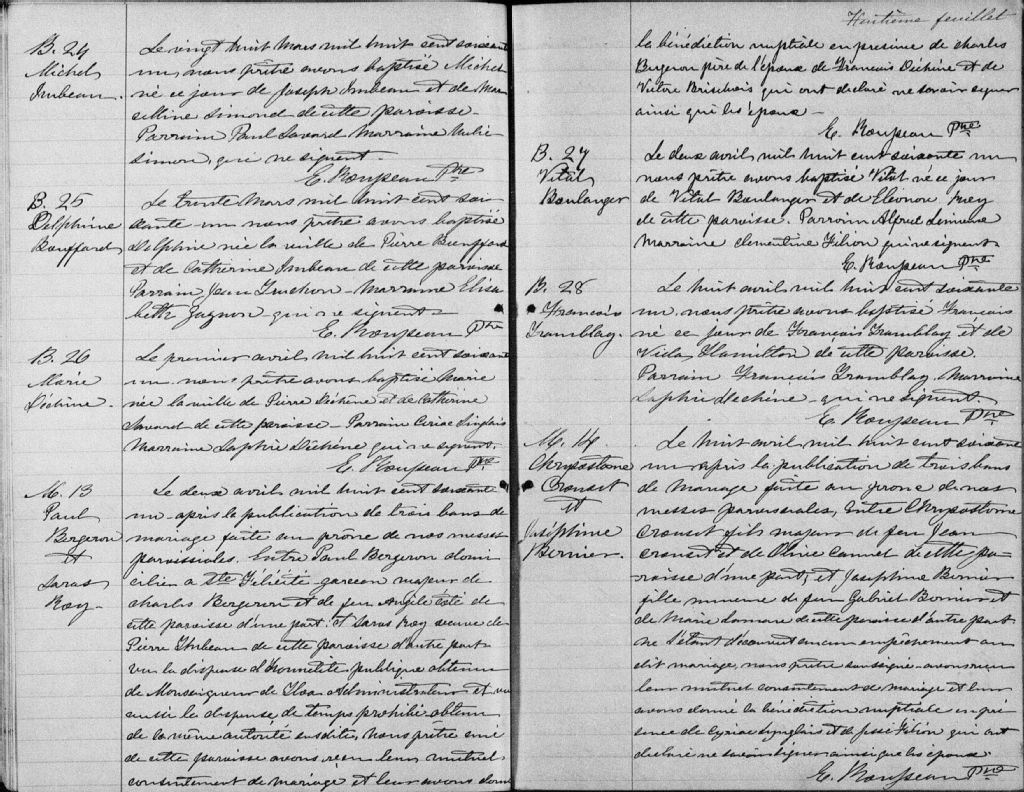 B. 24
Michel
Imbeau.
Le vingt huit Mars mil huit cent soixante
un, nous prêtre avons baptisé Michel
né ce jour de Joseph Imbeau et de Mar
celline Simond de cette paroisse.
Parrain Paul Savard Marraine Julie
Simon, qui ne signent.
E. Roupeau Ptre
B. 25
Delphine
Bouffard
Le trente Mars mil huit cent soi
xante un nous prêtre avons baptisé
Delphine née la veille de Pierre Bouffard
et de Catherine Imbeau de cette paroisse
Parrain Jean Truchon - Marraine Elisa
beth Gagnon qui ne signent -
E. Roupeau Ptre
B. 26
Marie
Déchène.
Le premier avril mil huit cent soixante
un nous prêtre avons baptisé Marie
née la veille de Pierre Déchène et de Catherine
Savard de cette paroisse - Parrain Ceriac Singlais
Marraine Saphie Déchène qui ne signent.
E. Roupeau Ptre
M. 13
Paul
Bergeron
et
Saras
Roy.
Le deux avril mil huit cent soixante
un après la publication de trois bans de
mariage faite au prône de nos messes
paroissiales. Entre Paul Bergeron domi
cilié a Ste Félicité garcon majeur de
charles Bergeron et de feu Angèle coté de
cette paroisse d'une part. et Saras Roy veuve de
Pierre Imbeau de cette paroisse d'autre part
vu la dispense d'honnêteté publique obtenu
de Monseigneur de Tloa Administrateur et vu
aussi la dispense de temps prohibé obtenu
de la même autorité susdite, Nous prêtre curé
de cette paroisse avons reçu leur mutuel
consentement de mariage et leur avons donné
Huitième feuillet
la bénédiction nuptiale en présence de charles
Bergeron père de l'époux de Francois Déchène et de
Victor Brisebois qui ont déclaré ne savoir signer
ainsi que les époux -
E. Roupeau Ptre
B. 27
Vital
Boulanger
Le deux avril mil huit cent soixante un
nous prêtre avons baptisé Vital né ce jour
de Vital Boulanger et de Eléonore Roy
de cette paroisse. Parrain Alfred
Marraine Clementine Filion qui ne signent
E. Roupeau Ptre
B. 28
Francois
Tramblay.
Le huit avril mil huit cent soixante
un, nous prêtre avons baptisé Francois
né ce jour de Francois Tramblay et de
Vida Hamilton de cette paroisse.
Parrain Francois Tramblay. Marraine
Saphie Dechène - qui ne signent.
E. Roupeau Ptre
M. 14
Chrysostome
Crouset
et
Joséphine
Bernier.
Le huit avril mil huit cent soixante
un après la publication de trois bans
de mariage faite au prone de nos
messes paroissiales, Entre Chrysostome
Crouset fils majeur de feu Jean
Crouset et de Olive Cannel de cette pa-
roisse d'une part, et Josephine Bernier
fille mineure de feu Gabriel Bernier et
de Marie Lamare de cette paroisse d'autre part
ne s'étant découvert aucun empêchement au
dit mariage, nous prêtre soussigné avons reçu
leur mutuel consentement de mariage et leur
avons donné la bénédiction nuptiale en pré
sence de Cyriac Synglais et de José Filion qui ont
déclaré ne savoir signer ainsi que les époux.
E. Roupeau Ptre